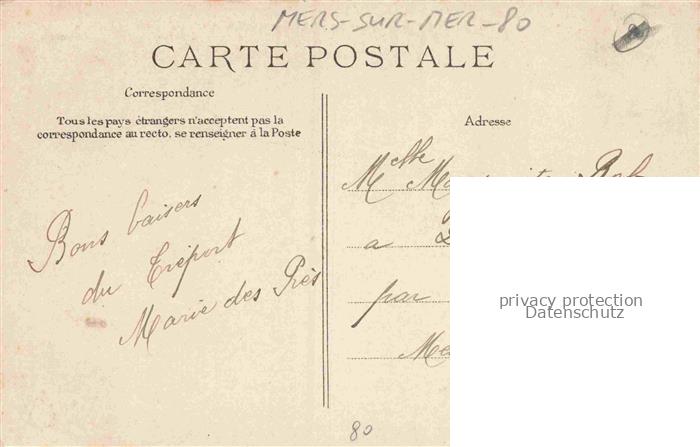 MERS-SUR-MER-80
CARTE POSTALE
Correspondance
Tous les pays étrangers n'acceptent pas la
correspondance au recto, se renseigner à la Poste
Bons baisers
du Tréport
Marie des Prés
Adresse
Melle
a
par
privacy protection
Datenschutz
80